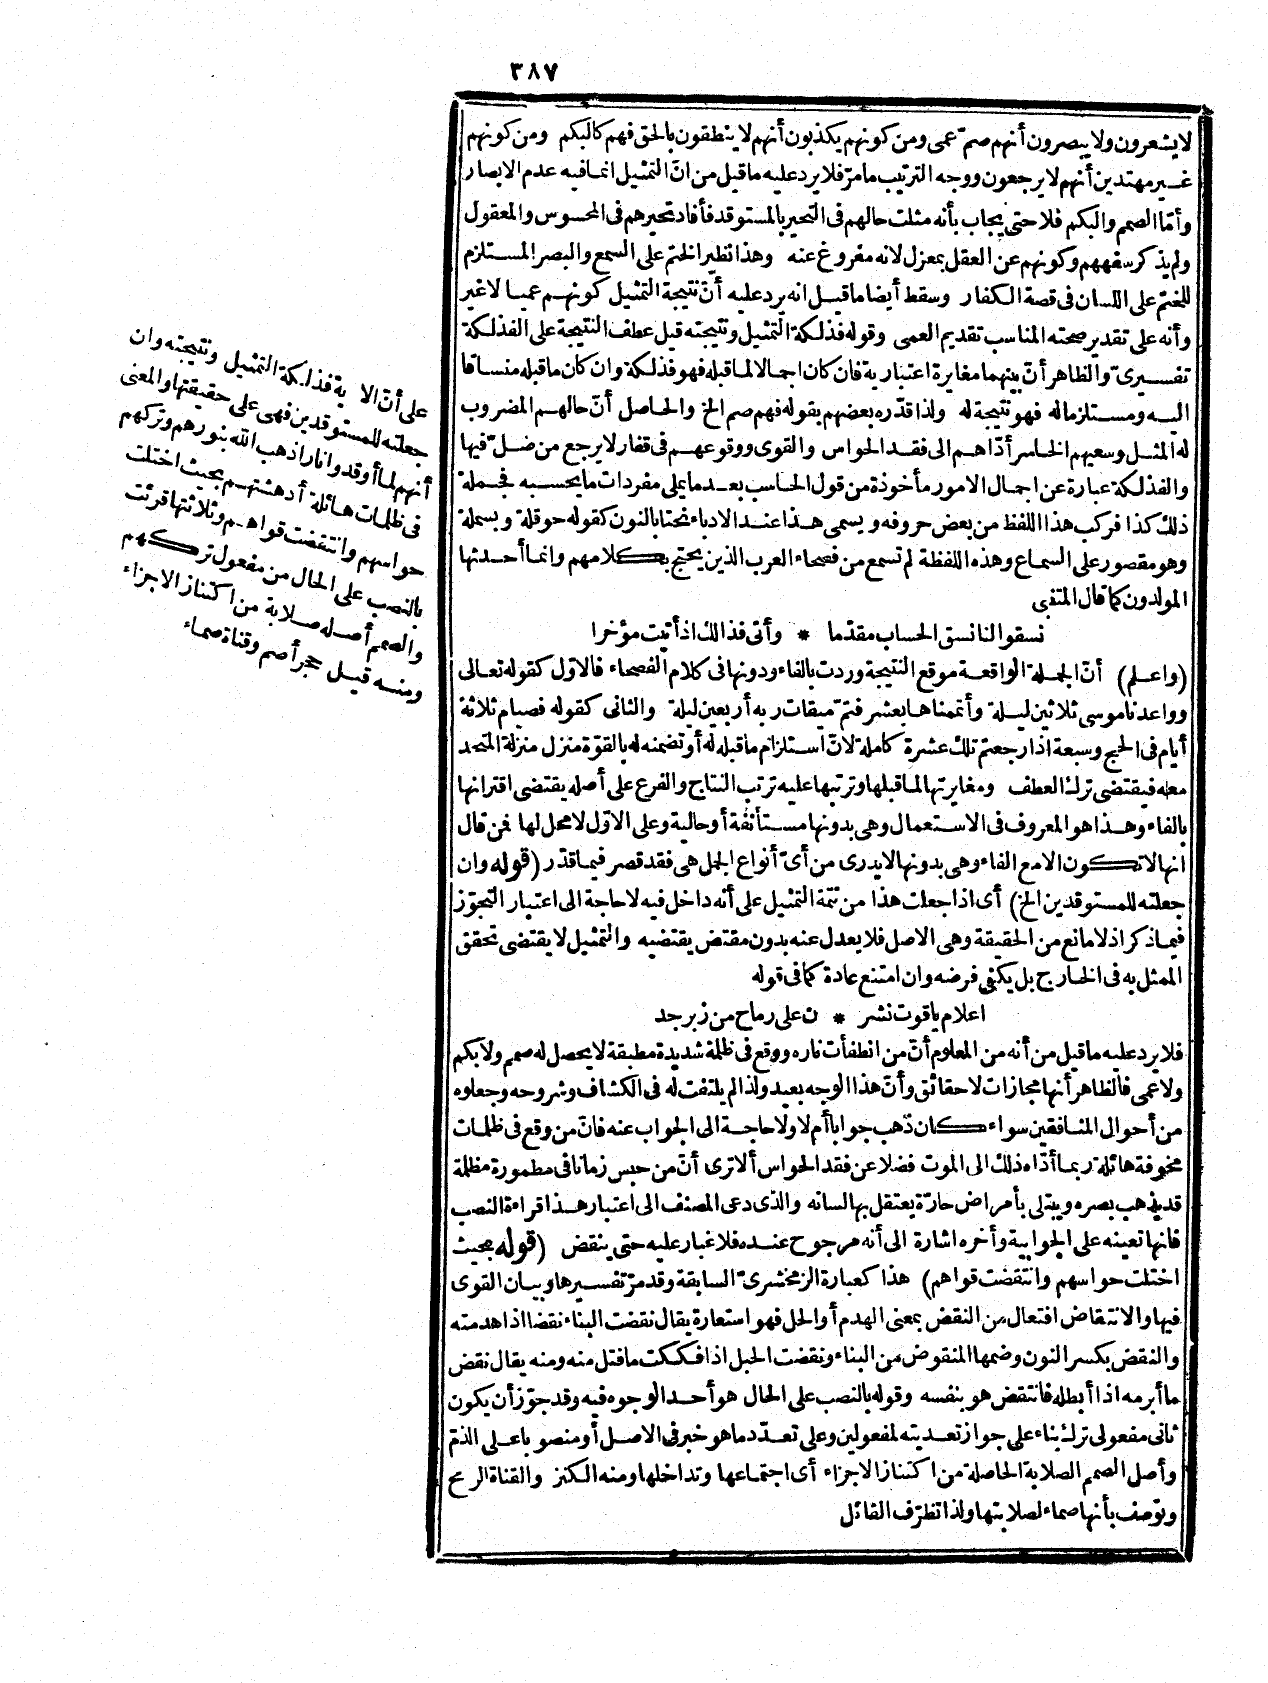 ٣٨٧
لا يشعرون ولا يبصرون أنهم صمّ عمى ومن كونهم يكذبون أنهم لا ينطقون بالحق فهم كالبكم ومن كونهم
غير مهتدين أنهم لا يرجعون ووجه الترتيب ما مرّ فلا يرد عليه ما قيل من انّ التمثيل انما فيه عدم الابصار
وأمّا الصمم والبكم فلا حتى يجاب بأنه مثلت حالهم فى التحير بالمستوقد فأفاد تحيرهم فى المحسوس والمعقول
ولم يذكر سفههم وكونهم عن العقل بمعزل لانه مفروغ عنه وهذا نظير الختم على السمع والبصر المستلزم
للختم على اللسان فى قصة الكفار وسقط أيضا ما قيل انه يرد عليه أنّ نتيجة التمثيل كونهم عميا لا غير
وأنه على تقدير صحته المناسب تقديم العمى وقوله فذلكة التمثيل ونتيجته قيل عطف النتيجة على الفذلكة
تفسيرىّ والظاهر أنّ بينهما مغايرة اعتبارية فان كان اجمالا لما قبله فهو فذلكة وان كان ما قبله منساقا
اليه ومستلزما له فهو نتيجة له ولذا قدّره بعضهم بقوله فهم صم الخ والحاصل أنّ حالهم المضروب
له المثل وسعيهم الخاسر أدّاهم الى فقد الحواس والقوى ووقوعهم فى قفار لا يرجع من ضلّ فيها
والفذلكة عبارة عن اجمال الامور مأخوذة من قول الحاسب بعد ما يملى مفردات ما يحسبه فجملة
ذلك كذا فركب هذا اللفظ من بعض حروفه ويسمى هذا عند الادباء نحتا بالنون كقوله حوقلة وبسملة
وهو مقصور على السماع وهذه اللفظة لم تسمع من فصحاء العرب الذين يحتج بكلامهم وانما أحدثها
المولدون كما قال المتنبى
نسقوا لنا نسق الحساب مقدّما * وأتى فذالك اذ أتيت مؤخرا
(واعلم) أنّ الجملة الواقعة موقع النتيجة وردت بالفاء ودونها فى كلام الفصحاء فالاوّل كقوله تعالى
وواعدنا موسى ثلاثين ليلة وأتممناها بعشر فتمّ ميقات ربه أربعين ليلة والثانى كقوله فصيام ثلاثة
أيام فى الحج وسبعة اذا رجعتم تلك عشرة كاملة لانّ استلزام ما قبله له أو تضمنه له بالقوّة منزل منزلة المتحد
معه فيقتضى ترك العطف ومغايرتها لما قبلها وترتبها عليه ترتب النتاج والفرع على أصله يقتضى اقترانها
بالفاء وهذا هو المعروف فى الاستعمال وهى بدونها مستأنفة أو حالية وعلى الاوّل لا محل لها فمن قال
انها لا تكون الا مع الفاء وهى بدونها لا يدرى من أىّ أنواع الجمل هى فقد قصر فيما قدّر (قوله وان
جعلته للمستوقدين الخ) أى اذا جعلت هذا من تتمة التمثيل على أنه داخل فيه لا حاجة الى اعتبار التجوّز
فيما ذكر اذ لا مانع من الحقيقة وهى الاصل فلا يعدل عنه بدون مقتض يقتضيه والتمثيل لا يقتضى تحقق
الممثل به فى الخارج بل يكفى فرضه وان امتنع عادة كما فى قوله
اعلام ياقوت نشر * ن على رماح من زبرجد
فلا يرد عليه ما قيل من أنه من المعلوم أنّ من انطفأت ناره ووقع فى ظلمة شديدة مطبقة لا يحصل له صمم ولا بكم
ولا عمى فالظاهر أنها مجازات لا حقائق وأنّ هذا الوجه بعيد ولذا لم يلتفت له فى الكشاف وشروحه وجعلوه
من أحوال المنافقين سواء كان ذهب جوابا أم لا ولا حاجة الى الجواب عنه فانّ من وقع فى ظلمات
مخوفة هائلة ربما أدّاه ذلك الى الموت فضلا عن فقد الحواس ألا ترى أنّ من حبس زمانا فى مطمورة مظلمة
قد يذهب بصره ويبتلى بأمراض حارّة يعتقل بها لسانه والذى دعى المصنف الى اعتبار هذا قراءة النصب
فانها تعينه على الجوابية وأخره اشارة الى أنه مرجوح عنده فلا غبار عليه حتى ينقض (قوله بحيث
اختلت حواسهم وانتقضت قواهم) هذا كعبارة الزمخشرىّ السابقة وقد مرّ تفسيرها وبيان القوى
فيها والانتقاض افتعال من النقض بمعنى الهدم أو الحل فهو استعارة يقال نقضت البناء نقضا اذا هدمته
والنقض بكسر النون وضمها المنقوض من البناء ونقضت الحبل اذا فككت ما فتل منه ومنه يقال نقض
ما أبرمه اذا أبطله فانتقض هو بنفسه وقوله بالنصب على الحال هو أحد الوجوه فيه وقد جوّز أن يكون
ثانى مفعولى ترك بناء على جواز تعديته لمفعولين وعلى تعدّد ما هو خبر فى الاصل أو منصوبا على الذمّ
وأصل الصمم الصلابة الحاصلة من اكتناز الاجزاء أى اجتماعها وتداخلها ومنه الكنز والقناة الرمح
وتوصف بأنها صماء لصلابتها ولذا تظرّف القائل
على أنّ الآية فذلكة التمثيل ونتيجته وان
جعلته للمستوقدين فهى على حقيقتها والمعنى
أنهم لما أوقدوا نارا ذهب الله بنورهم وتركهم
فى ظلمات هائلة أدهشتهم بحيث اختلت
حواسهم وانتقضت قواهم وثلاثتها قرئت
بالنصب على الحال من مفعول تركهم
والصمم أصله صلابة من اكتناز الاجزاء
ومنه قيل حجر أصم وقناة صماء